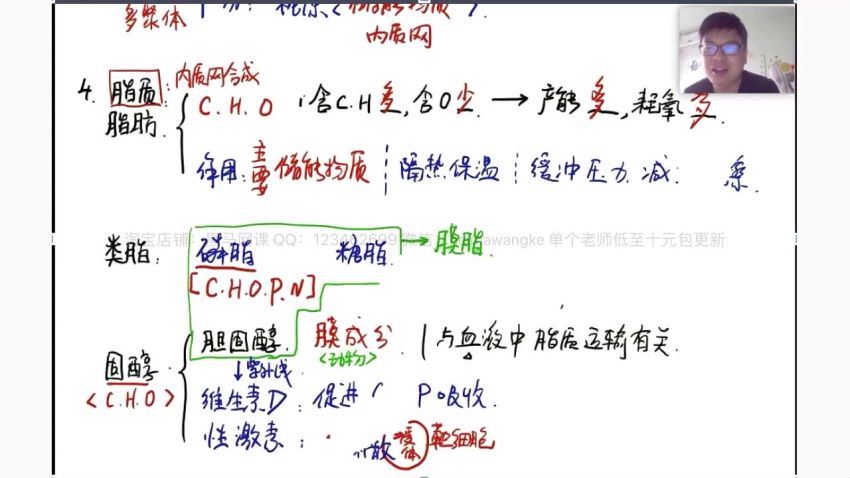 多聚体
内质网
4. 脂质: 内质网合成
脂肪. C.H.O 含C.H多,含O少. → 产能多,耗氧多.
作用: 主要储能物质 隔热保温 缓冲压力 减
淘宝店铺 网课 QQ: 微信 awangke 单个老师低至十元包更新
类脂: 磷脂 糖脂 → 膜脂.
[C.H.O.P.N]
固醇 胆固醇. 膜成分. 与血液中脂质运输有关.
<C.H.O> ↓紫外线 <动物>
维生素D: 促进 P吸收.
性激素: 散 受体 靶细胞